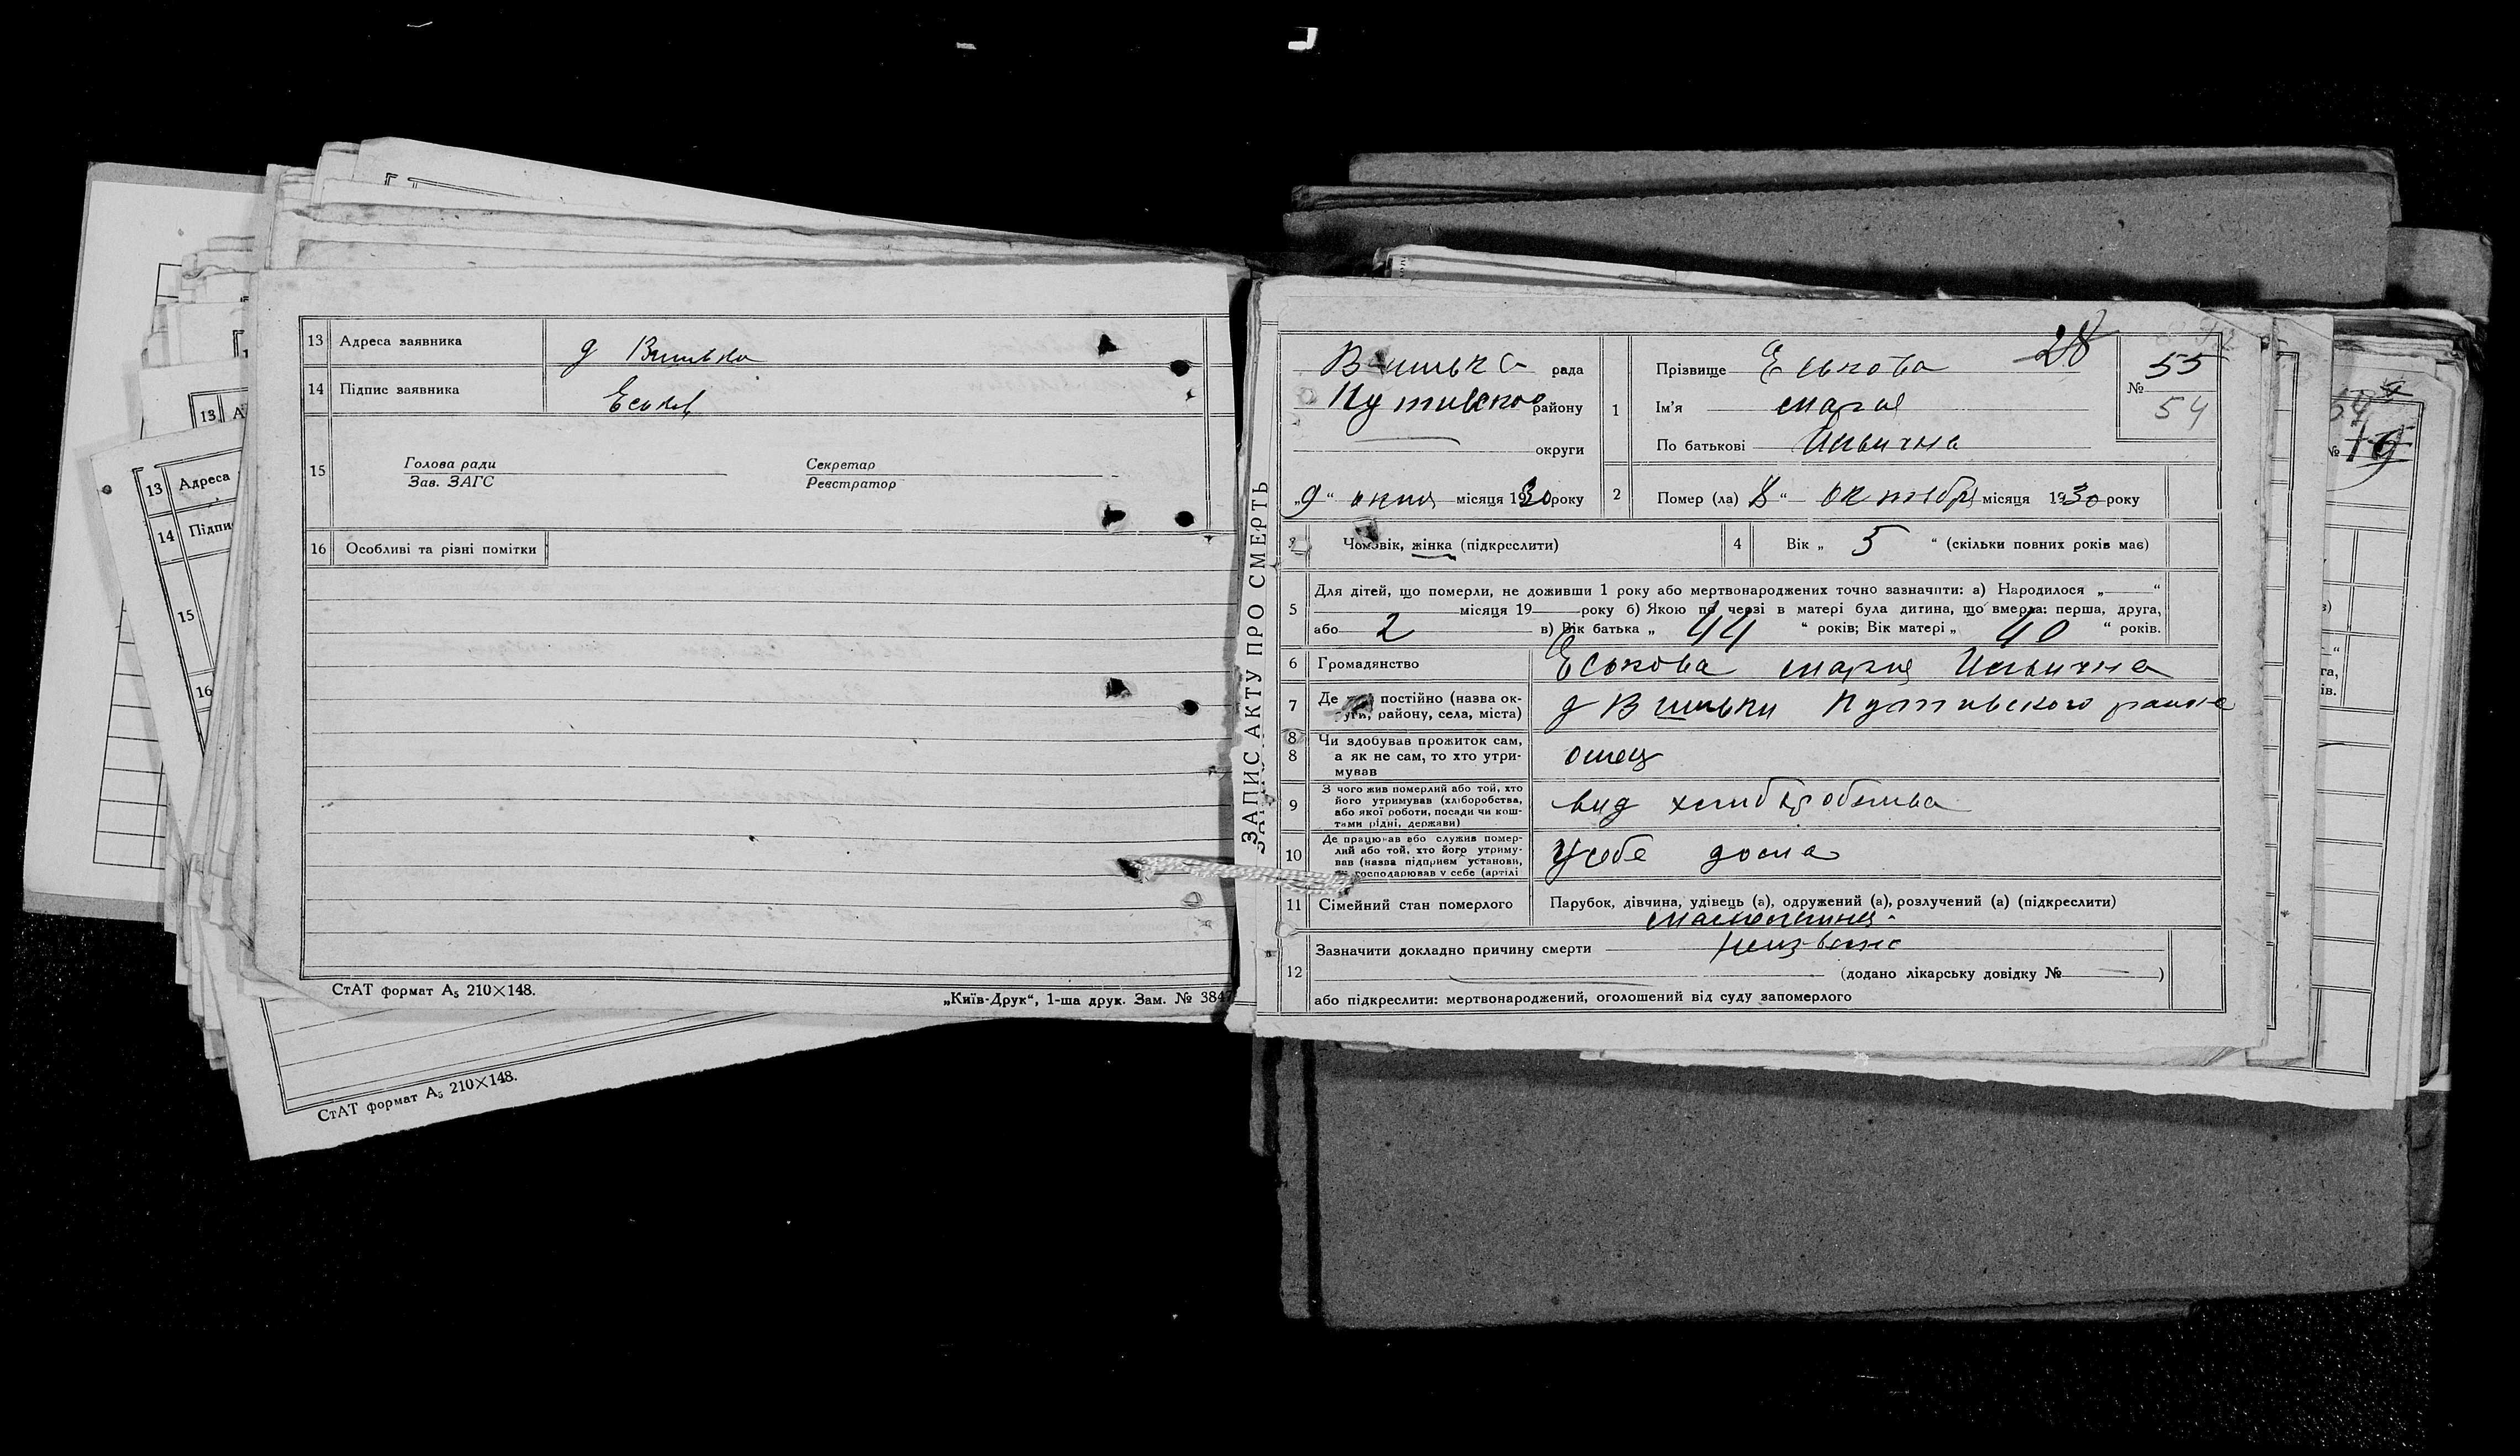 13 Адреса заявника
14 Підпис заявника Еськов
15 Голова ради Секретар
Зав. ЗАГС Реєстратор
16 Особливі та різні помітки
СтАТ формат А₅ 210×148.
„Київ-Друк“, 1-ша друк. Зам. № 3847
СтАТ формат А₅ 210×148.
13 А
13 Адреса
14 Підпи
15
16
ЗАПИС АКТУ ПРО СМЕРТЬ
рада
району
округи
„9“ місяця 1930 року
1 Прізвище Еськова 28
Ім'я Мария
По батькові Ильична
№ 55
54
2 Помер (ла) 8 “ октября місяця 1930 року
Чоловік, жінка (підкреслити)
4 Вік „ 5 “ (скільки повних років має)
5 Для дітей, що померли, не доживши 1 року або мертвонароджених точно зазначити: а) Народилося „ “
місяця 19 року б) Якою по черзі в матері була дитина, що вмерла: перша, друга,
або 2 в) Вік батька „ 44 “ років; Вік матері „ 40 “ років.
6 Громадянство Еськова Мария Ильична
7 Де постійно (назва ок-
руги, району, села, міста) Путивского района
8 Чи здобував прожиток сам,
8 а як не сам, то хто утри-
мував отец
9 З чого жив померлий або той, хто
його утримував (хліборобства,
або якої роботи, посади чи кош-
тами рідні, держави) вид хлиборобства
10 Де працював або служив помер-
лий або той, хто його утриму-
вав (назва підприєм установи,
господарював у себе (артілі у себе дома
11 Сімейний стан померлого Парубок, дівчина, удівець (а), одружений (а), розлучений (а) (підкреслити)
12 Зазначити докладно причину смерти
(додано лікарську довідку № — )
або підкреслити: мертвонароджений, оголошений від суду запомерлого